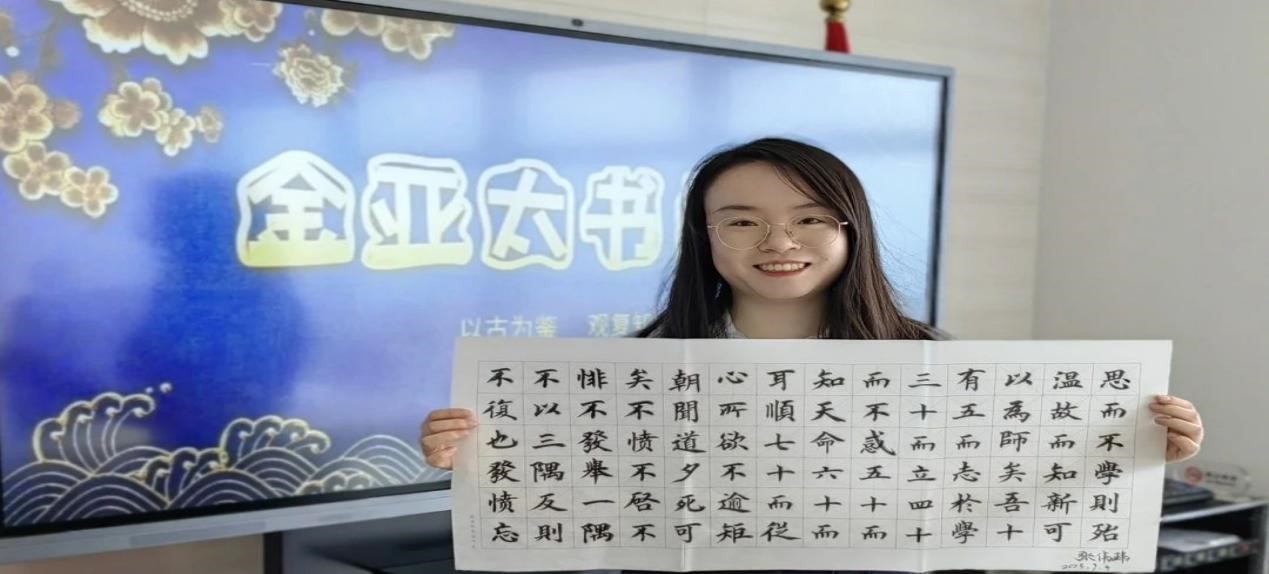 金亚太书
以古为鉴 观复
思而不學則殆
温故而知新可
以為師矣吾十
有五而志於學
三十而立四十
而不惑五十而
知天命六十而
耳順七十而從
心所欲不逾矩
朝聞道夕死可
矣不愤不啓不
悱不發舉一隅
不以三隅反則
不復也發愤忘